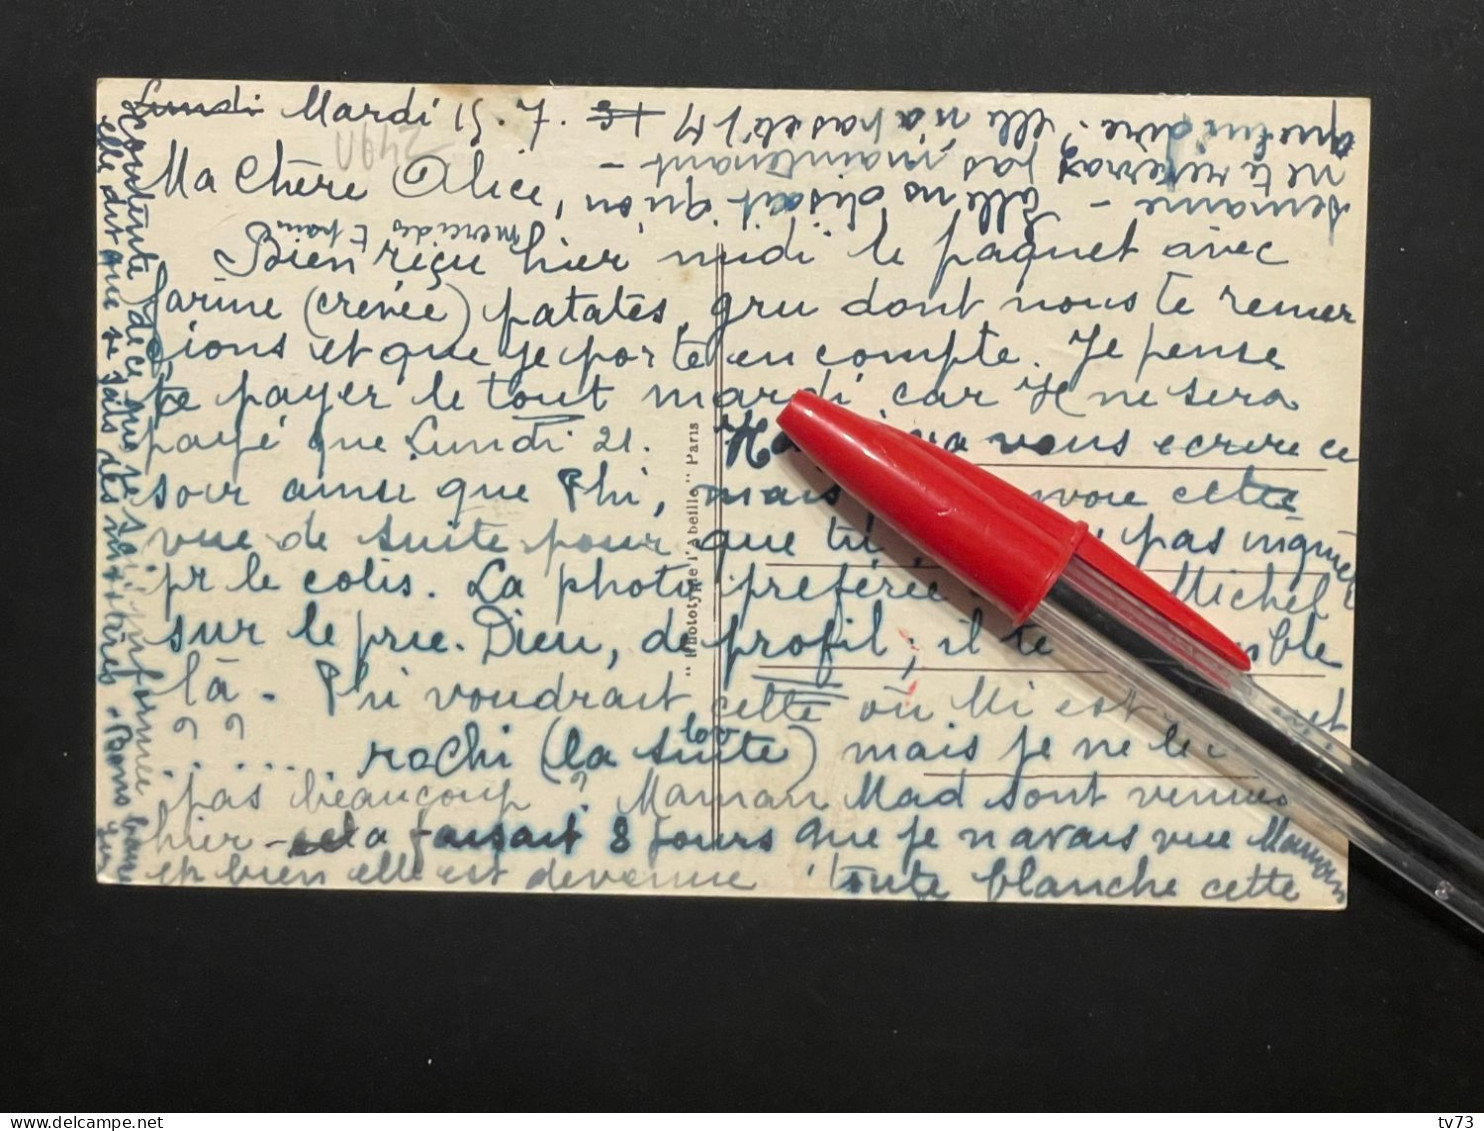 Lundi Mardi 15. 7.
Ma Chère Alice,
merci des t pain
Bien reçu hier midi le paquet avec
farine (crevée) patates, gru dont nous te remer
cions et que je porte en compte. Je pense
te payer le tout mardi, car H ne sera
payé que Lundi 21. vous ecrire ce
soir ainsi que Phi, mais voie cette
vue de suite pour que tu pas inquiet
pr le colis. La photo préférée Michel
sur le prie-Dieu, de profil, il te ble
là. Phi voudrait cette où Mi est
? ?
..... rochi (la suite) mais je ne le
pas beaucoup? Maman Mad sont venues
hier - cela faisait 8 jours que je n'avais vue Maman
eh bien elle est devenue toute blanche cette
semaine - Elle ns disait qu'on
ne te reverra pas maintenant -
que lui dire? elle n'a pas été
contente de ce que je sais informée
elle dit que je fais des mystères. Bons
"Phototypie l'Abeille" Paris
tv73